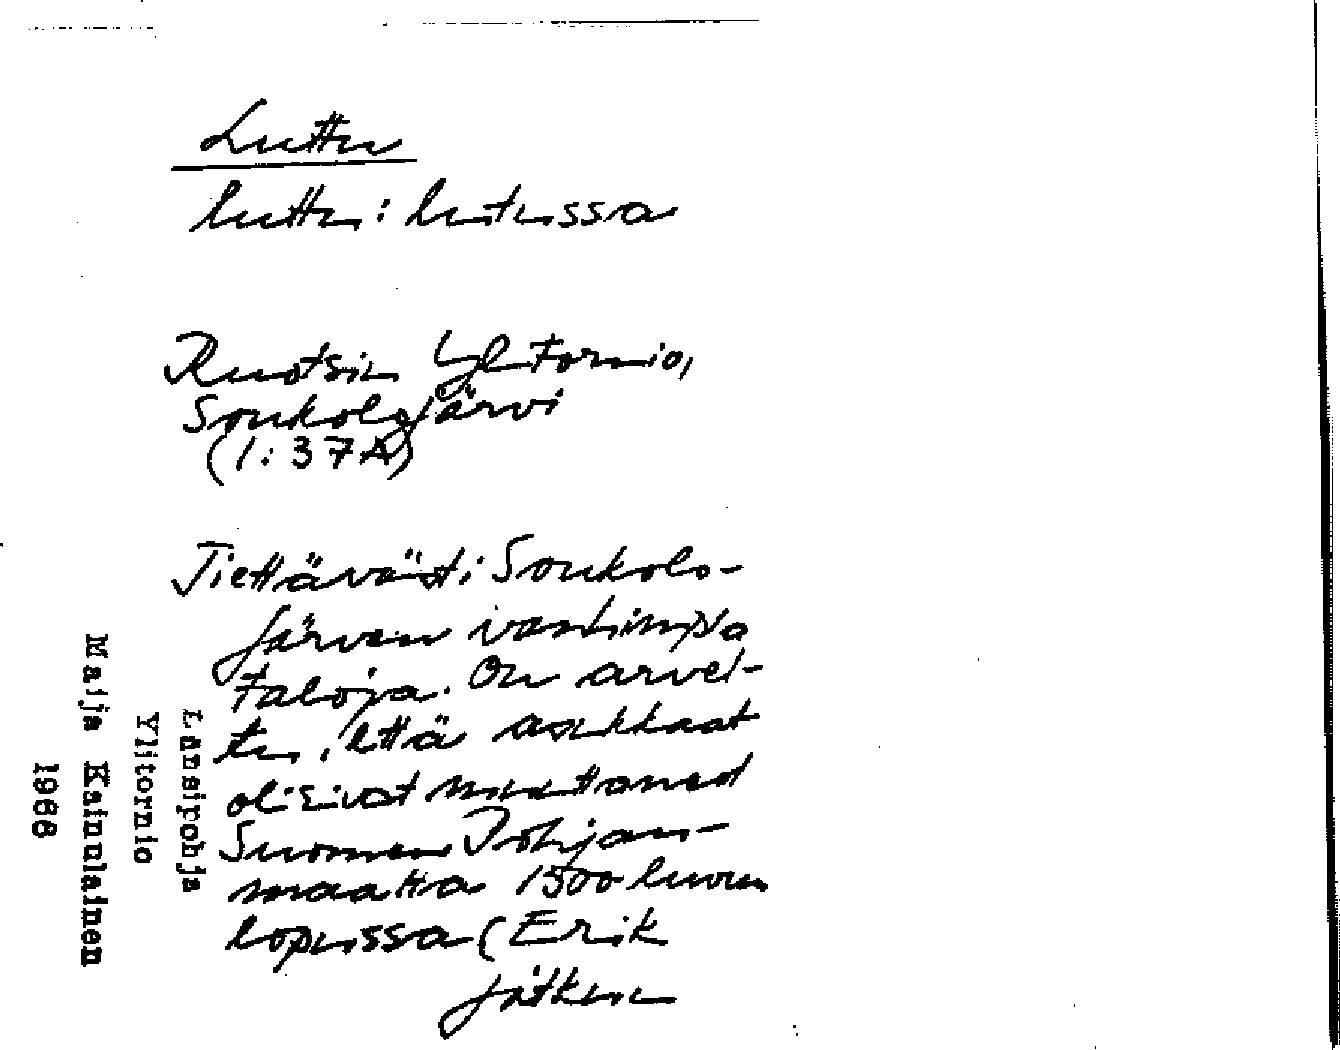 Luttu
luttu: lutussa
Ruotsin Ylitornio,
Soukolojärvi
(1:37A)
Tiettävästi Soukolo-
järven vanhimpia
taloja. On arvel-
tu, että asukkaat
olisivat muuttaneet
Suomen Pohjan-
maalta 1500 luvun
lopussa (Erik
jatkuu
Länsipohja
Ylitornio
Maija Kainulainen
1968